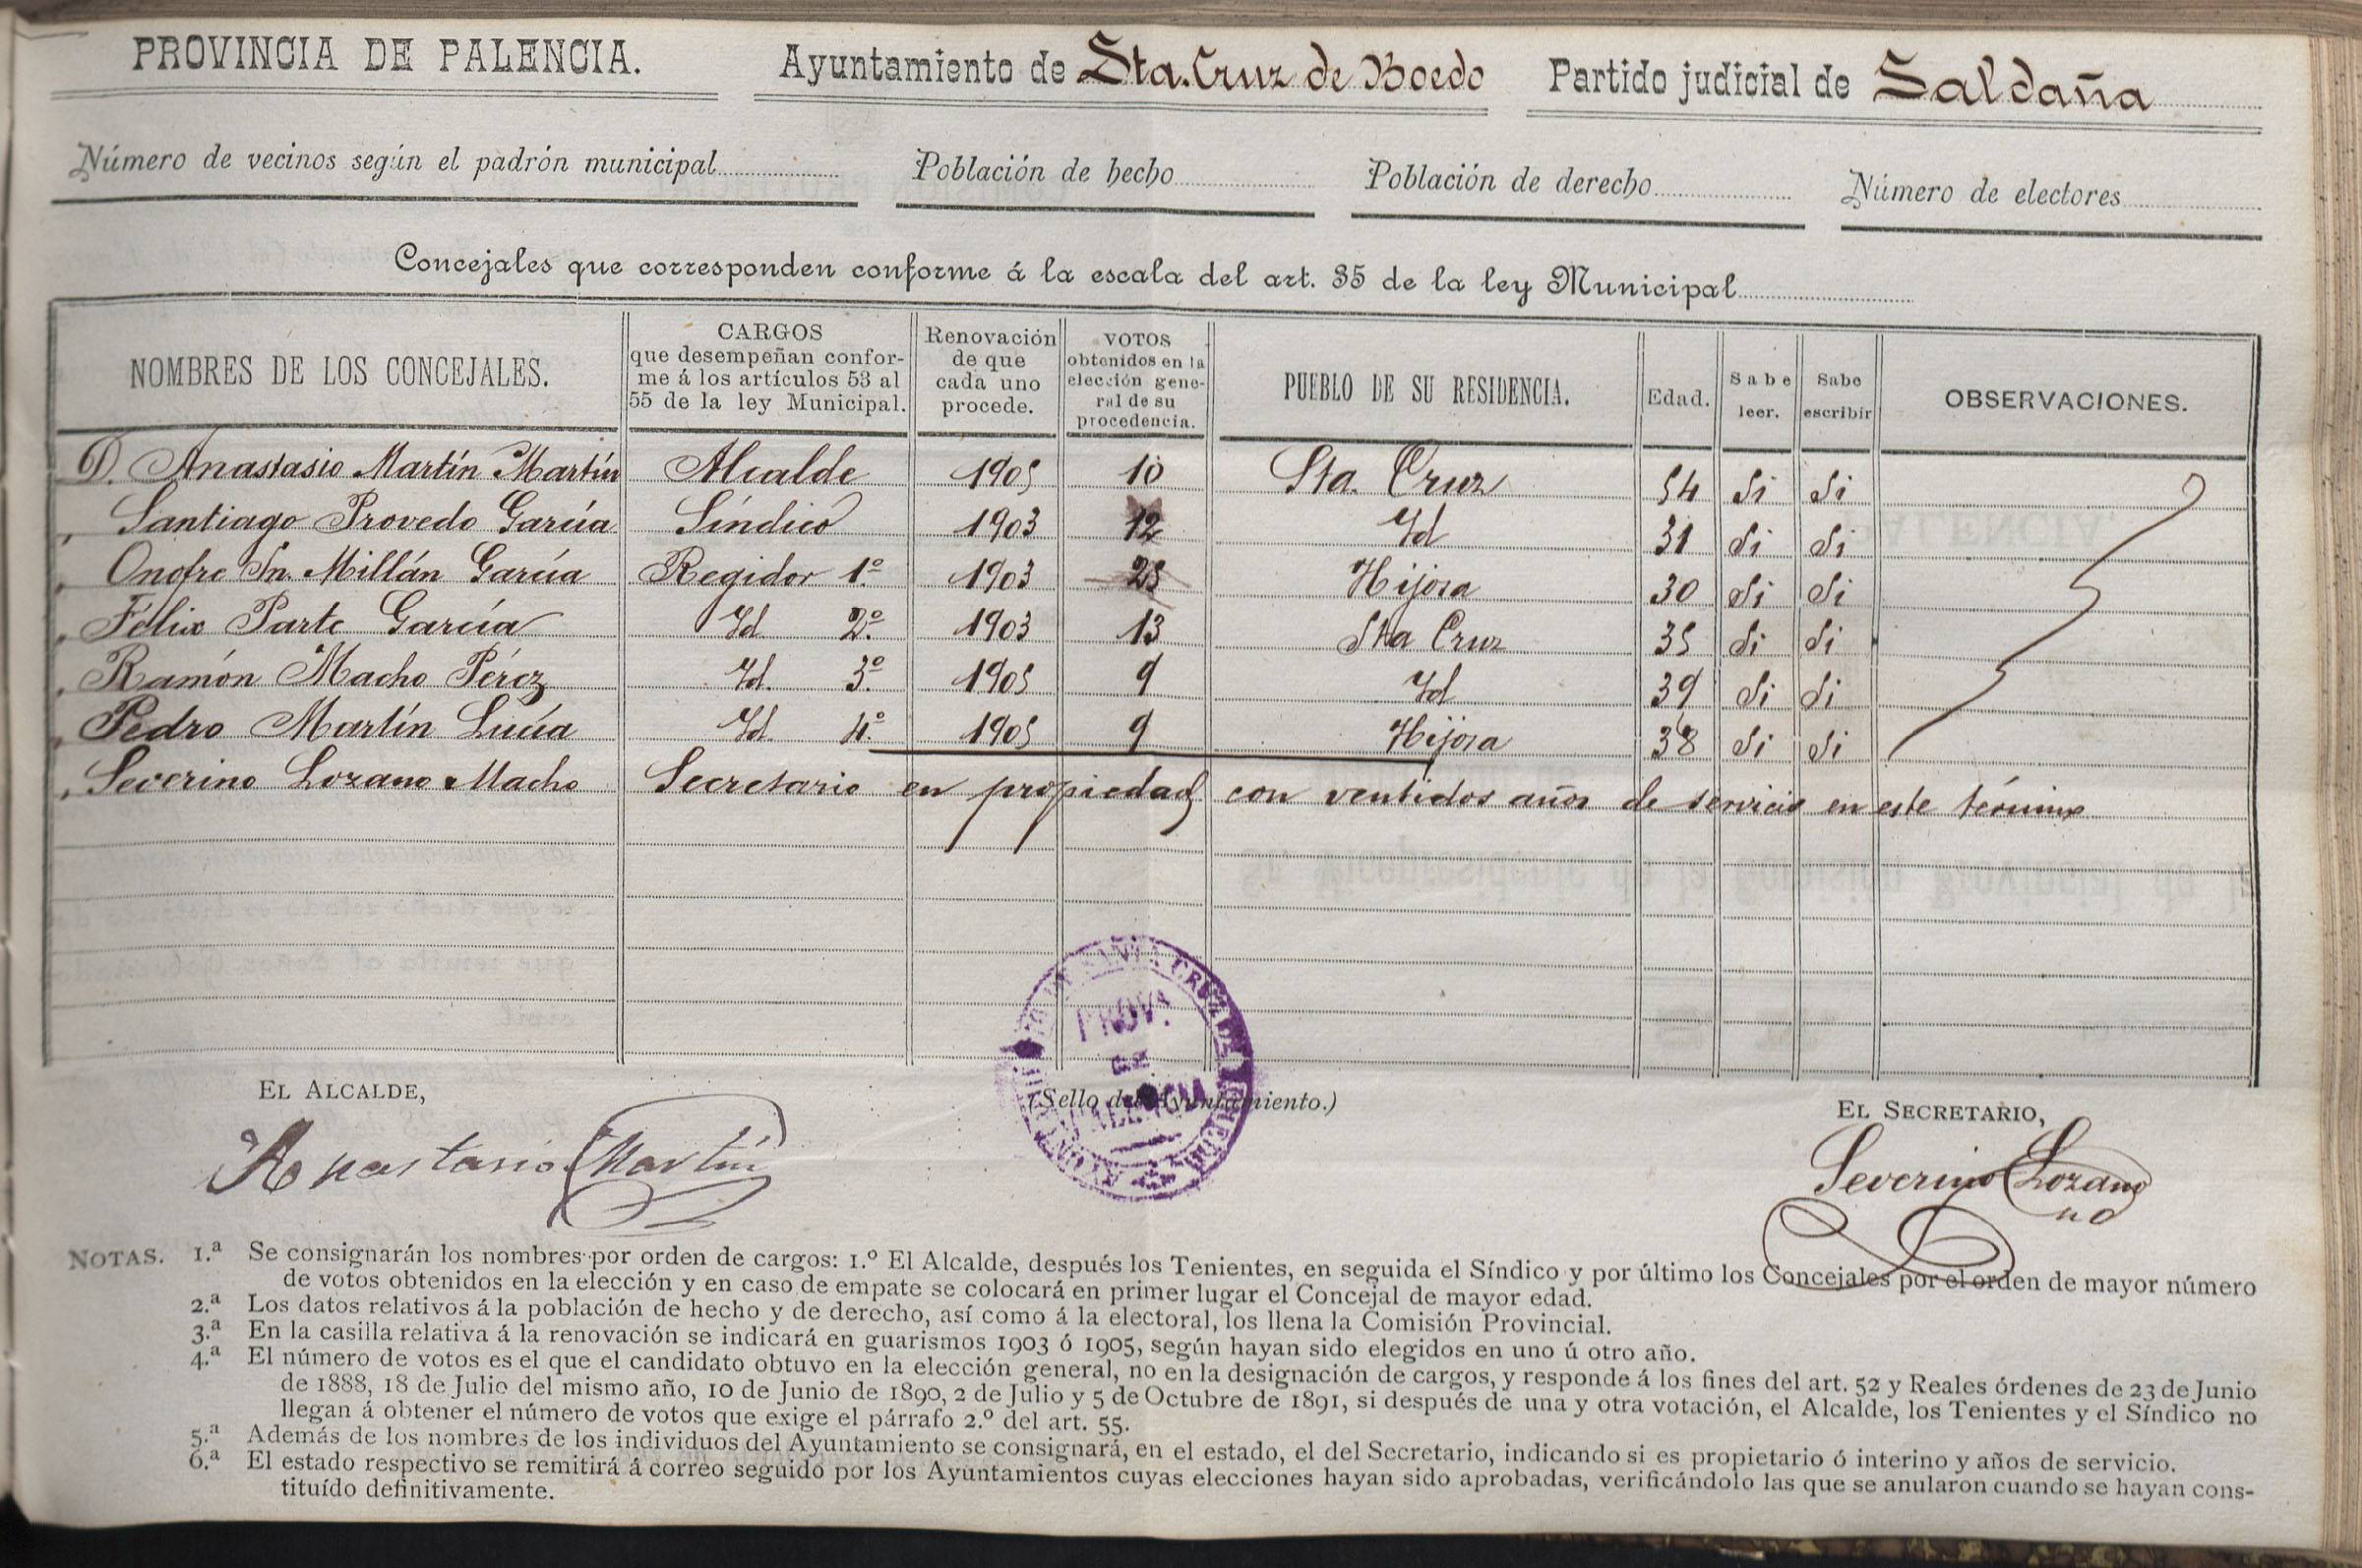 PROVINCIA DE PALENCIA. Ayuntamiento de Sta. Cruz de Boedo Partido judicial de Saldaña
Número de vecinos según el padrón municipal Población de hecho Población de derecho Número de electores
Concejales que corresponden conforme á la escala del art. 35 de la ley Municipal
NOMBRES DE LOS CONCEJALES. CARGOS que desempeñan confor- me á los artículos 53 al 55 de la ley Municipal. Renovación de que cada uno procede. VOTOS obtenidos en la elección gene- ral de su procedencia. PUEBLO DE SU RESIDENCIA. Edad. Sabe leer. Sabe escribir OBSERVACIONES.
D. Anastasio Martín Martín Alcalde 1905 10 Sta. Cruz 54 Si Si
" Santiago Provedo García Síndico 1903 12 Id 31 Si Si
" Onofre Sn. Millán García Regidor 1º 1903 28 Hijosa 30 Si Si
" Félix Parte García Id 2º 1903 13 Sta Cruz 35 Si Si
" Ramón Macho Pérez Id. 3º 1905 9 Id 39 Si Si
" Pedro Martín Lucía Id. 4º 1905 9 Hijosa 38 Si Si
" Severino Lozano Macho Secretario en propiedad con ventidos años de servicio en este término
EL ALCALDE, (Sello del Ayuntamiento.) EL SECRETARIO,
PROV.ª
DE
PALENCIA
Anastasio Martín Severino Lozano
NOTAS. 1.ª Se consignarán los nombres por orden de cargos: 1.º El Alcalde, después los Tenientes, en seguida el Síndico y por último los Concejales por el orden de mayor número
de votos obtenidos en la elección y en caso de empate se colocará en primer lugar el Concejal de mayor edad.
2.ª Los datos relativos á la población de hecho y de derecho, así como á la electoral, los llena la Comisión Provincial.
3.ª En la casilla relativa á la renovación se indicará en guarismos 1903 ó 1905, según hayan sido elegidos en uno ú otro año.
4.ª El número de votos es el que el candidato obtuvo en la elección general, no en la designación de cargos, y responde á los fines del art. 52 y Reales órdenes de 23 de Junio
de 1888, 18 de Julio del mismo año, 10 de Junio de 1890, 2 de Julio y 5 de Octubre de 1891, si después de una y otra votación, el Alcalde, los Tenientes y el Síndico no
llegan á obtener el número de votos que exige el párrafo 2.º del art. 55.
5.ª Además de los nombres de los individuos del Ayuntamiento se consignará, en el estado, el del Secretario, indicando si es propietario ó interino y años de servicio.
6.ª El estado respectivo se remitirá á correo seguido por los Ayuntamientos cuyas elecciones hayan sido aprobadas, verificándolo las que se anularon cuando se hayan cons-
tituído definitivamente.